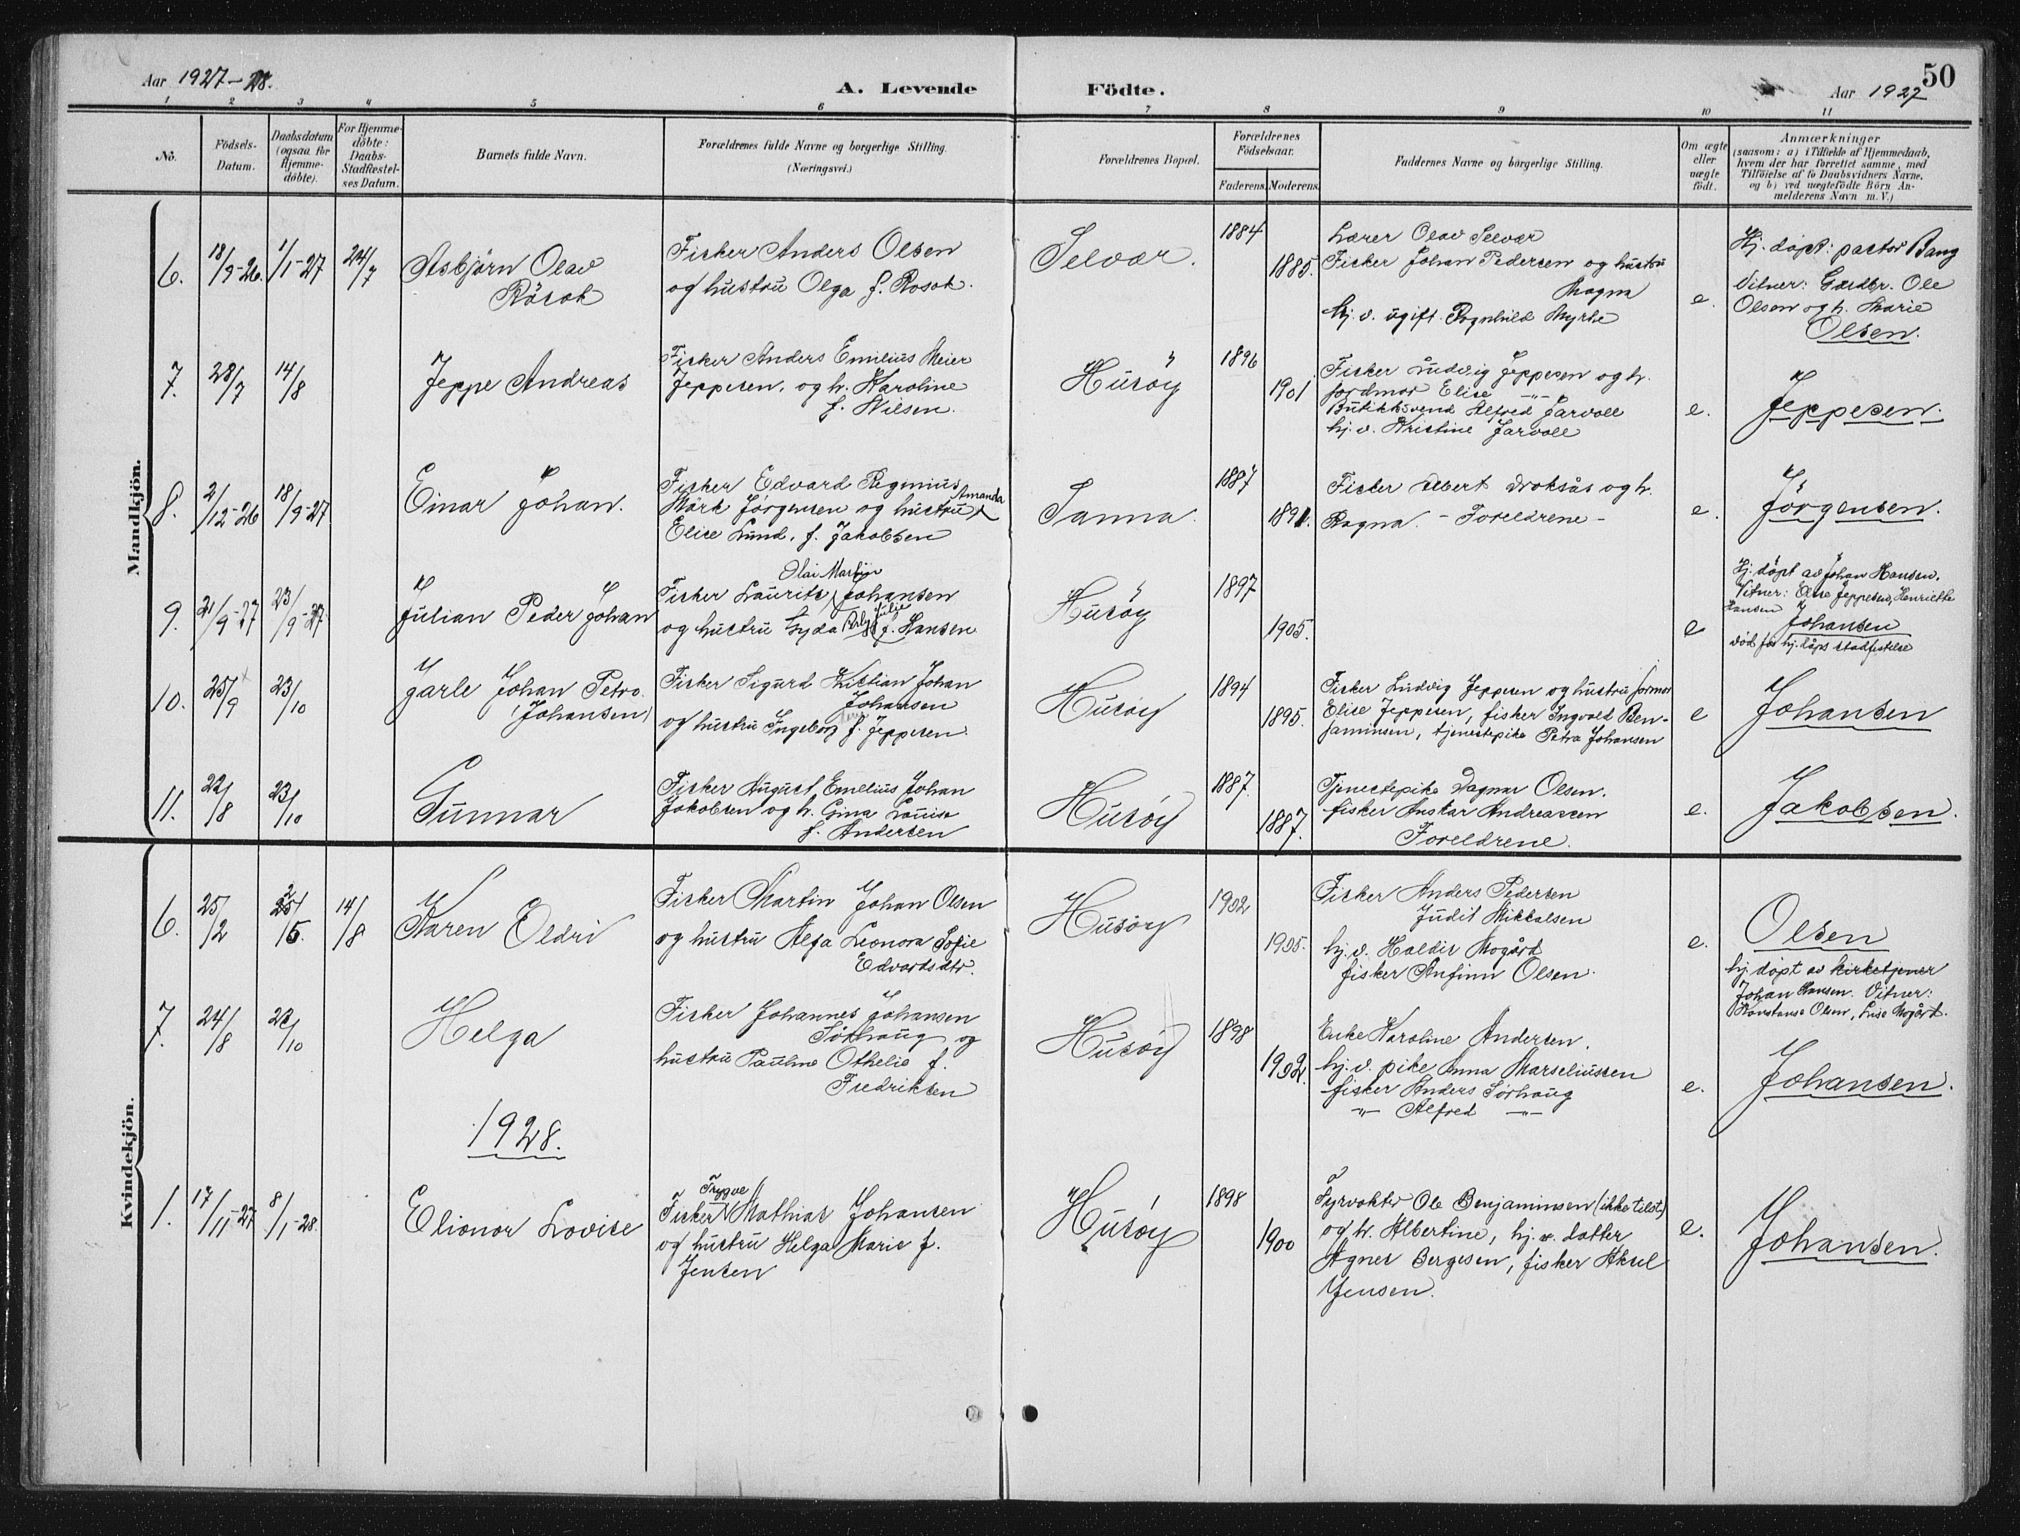 Aar 1927-28.
A. Levende Födte.
Aar 1927
50
1 2 3 4 5 6 7 8 9 10 11
No.
Födsels-
Datum.
Daabsdatum
(ogsaa for
Hjemme-
döbte).
For Hjemme-
döbte:
Daabs-
Stadfæstel-
ses Datum.
Barnets fulde Navn.
Forældrenes fulde Navne og borgerlige Stilling.
(Næringsvei.)
Forældrenes Bopæl.
Forældrenes
Födselsaar.
Faderens. Moderens.
Faddernes Navne og borgerlige Stilling.
Om ægte
eller
uægte
födt.
Anmærkninger
(saasom: a) i Tilfælde af Hjemmedaab,
hvem der har forrettet samme, med
Tilföielse af to Daabsvidners Navne,
og b) ved uægtefödte Börn An-
melderens Navn m. V.)
Mandkjön.
6. 18/9-26. 1/1-27 24/7
Asbjørn Olav
Røsok
Fisker Anders Olsen
og hustru Olga f. Rosok.
Selvær.
1884
1885.
Lærer Olav Selvær
Fisker Johan Pedersen og hustru
Magna
hj. v. ugift Ragnhild Myrhe
e.
Hj. døpt: pastor Bang
Vitner: Gardbr. Ole
Olsen og h. Marie
Olsen.
7. 28/7 14/8
Jeppe Andreas
Fisker Anders Emilius Meier
Jeppesen, og h. Karoline
f. Nilsen.
Husøy
1896
1901
Fisker Ludvig Jeppesen og h.
jordmor Elise -"-
Butikksvend Alfred Jarvoll
hj. v. Kristine Jarvoll
e.
Jeppesen.
8. 2/12-26 18/9-27
Einar Johan.
Fisker Edvard Regenius
Mørk Jørgensen og hustru Amanda
Elise Lund, f. Jakobsen
Sanna.
1887
1891.
Fisker Albert Droksås og h.
Ragna. - Foreldrene -
e.
Jörgensen.
9. 21/9-27 23/9-27
Julian Peder Johan
Olai Martin
Fisker Laurits Johansen
og hustru Gyda Julie f. Hansen
Husøy
1897
1905.
e
Hj. døpt av Johan Hansen.
Vitner: Else Jeppesen, Henriette
Hansen
Johansen
død før hj. dåps stadfestelse
10. 25/9 23/10
Jarle Johan Petro.
(Johansen)
Fisker Sigurd Kristian Johan
Johansen
og hustru Ingeborg f. Jeppesen.
Husøy
1894
1895.
Fisker Ludvig Jeppesen og hustru jormor
Elise Jeppesen, fisker Ingvald Ben-
jaminsen, tjenestepike Petra Johansen
e
Johansen
11. 22/8 23/10
Gunnar
Fisker August Emelius Johan
Jakobsen og h. Gina Louise
f. Andersen
Husøy
1887.
1887.
Tjenestepike Dagmar Olsen.
fisker Anskar Andreassen
Foreldrene.
e.
Jakobsen.
Kvindekjön.
6. 25/2 25/5. 14/8
Karen Eldri
Fisker Martin Johan Olsen
og hustru Alfa Leonora Sofie
Edvardsdtr.
Husøy
1902
1905.
Fisker Anders Pedersen
Judit Mikkalsen
hj. v. Haldis Mogård
fisker Anfinn Olsen.
e.
Olsen
hj. døpt av kirketjener
Johan Hansen. Vitner:
Konstanse Olsen, Lise Mogård.
7. 24/8 23/10
Helga
Fisker Johannes Johansen
Sørhaug og
hustru Pauline Othelie f.
Fredriksen
Husøy
1898
1902.
Enke Karoline Andersen.
hj. v. pike Anna Marseliussen
fisker Anders Sørhaug
-"- Alfred -"-
e.
Johansen.
1928.
1. 17/11-27 8/1-28.
Elionor Lovise
Trygve
Fisker Mathias Johansen
og hustru Helga Marie f.
Jensen
Husøy
1898
1900
Fyrvokter Ole Benjaminsen (ikke tilst.)
og h. Albertine, hj. v. datter
Agnes Bergesen, fisker Aksel
Jensen.
e.
Johansen.